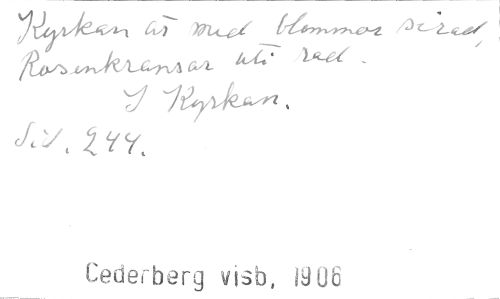 Kyrkan är med blommor sirad,
Rosenkransar uti rad.
I Kyrkan.
Sid. 244.
Cederberg visb, 1906